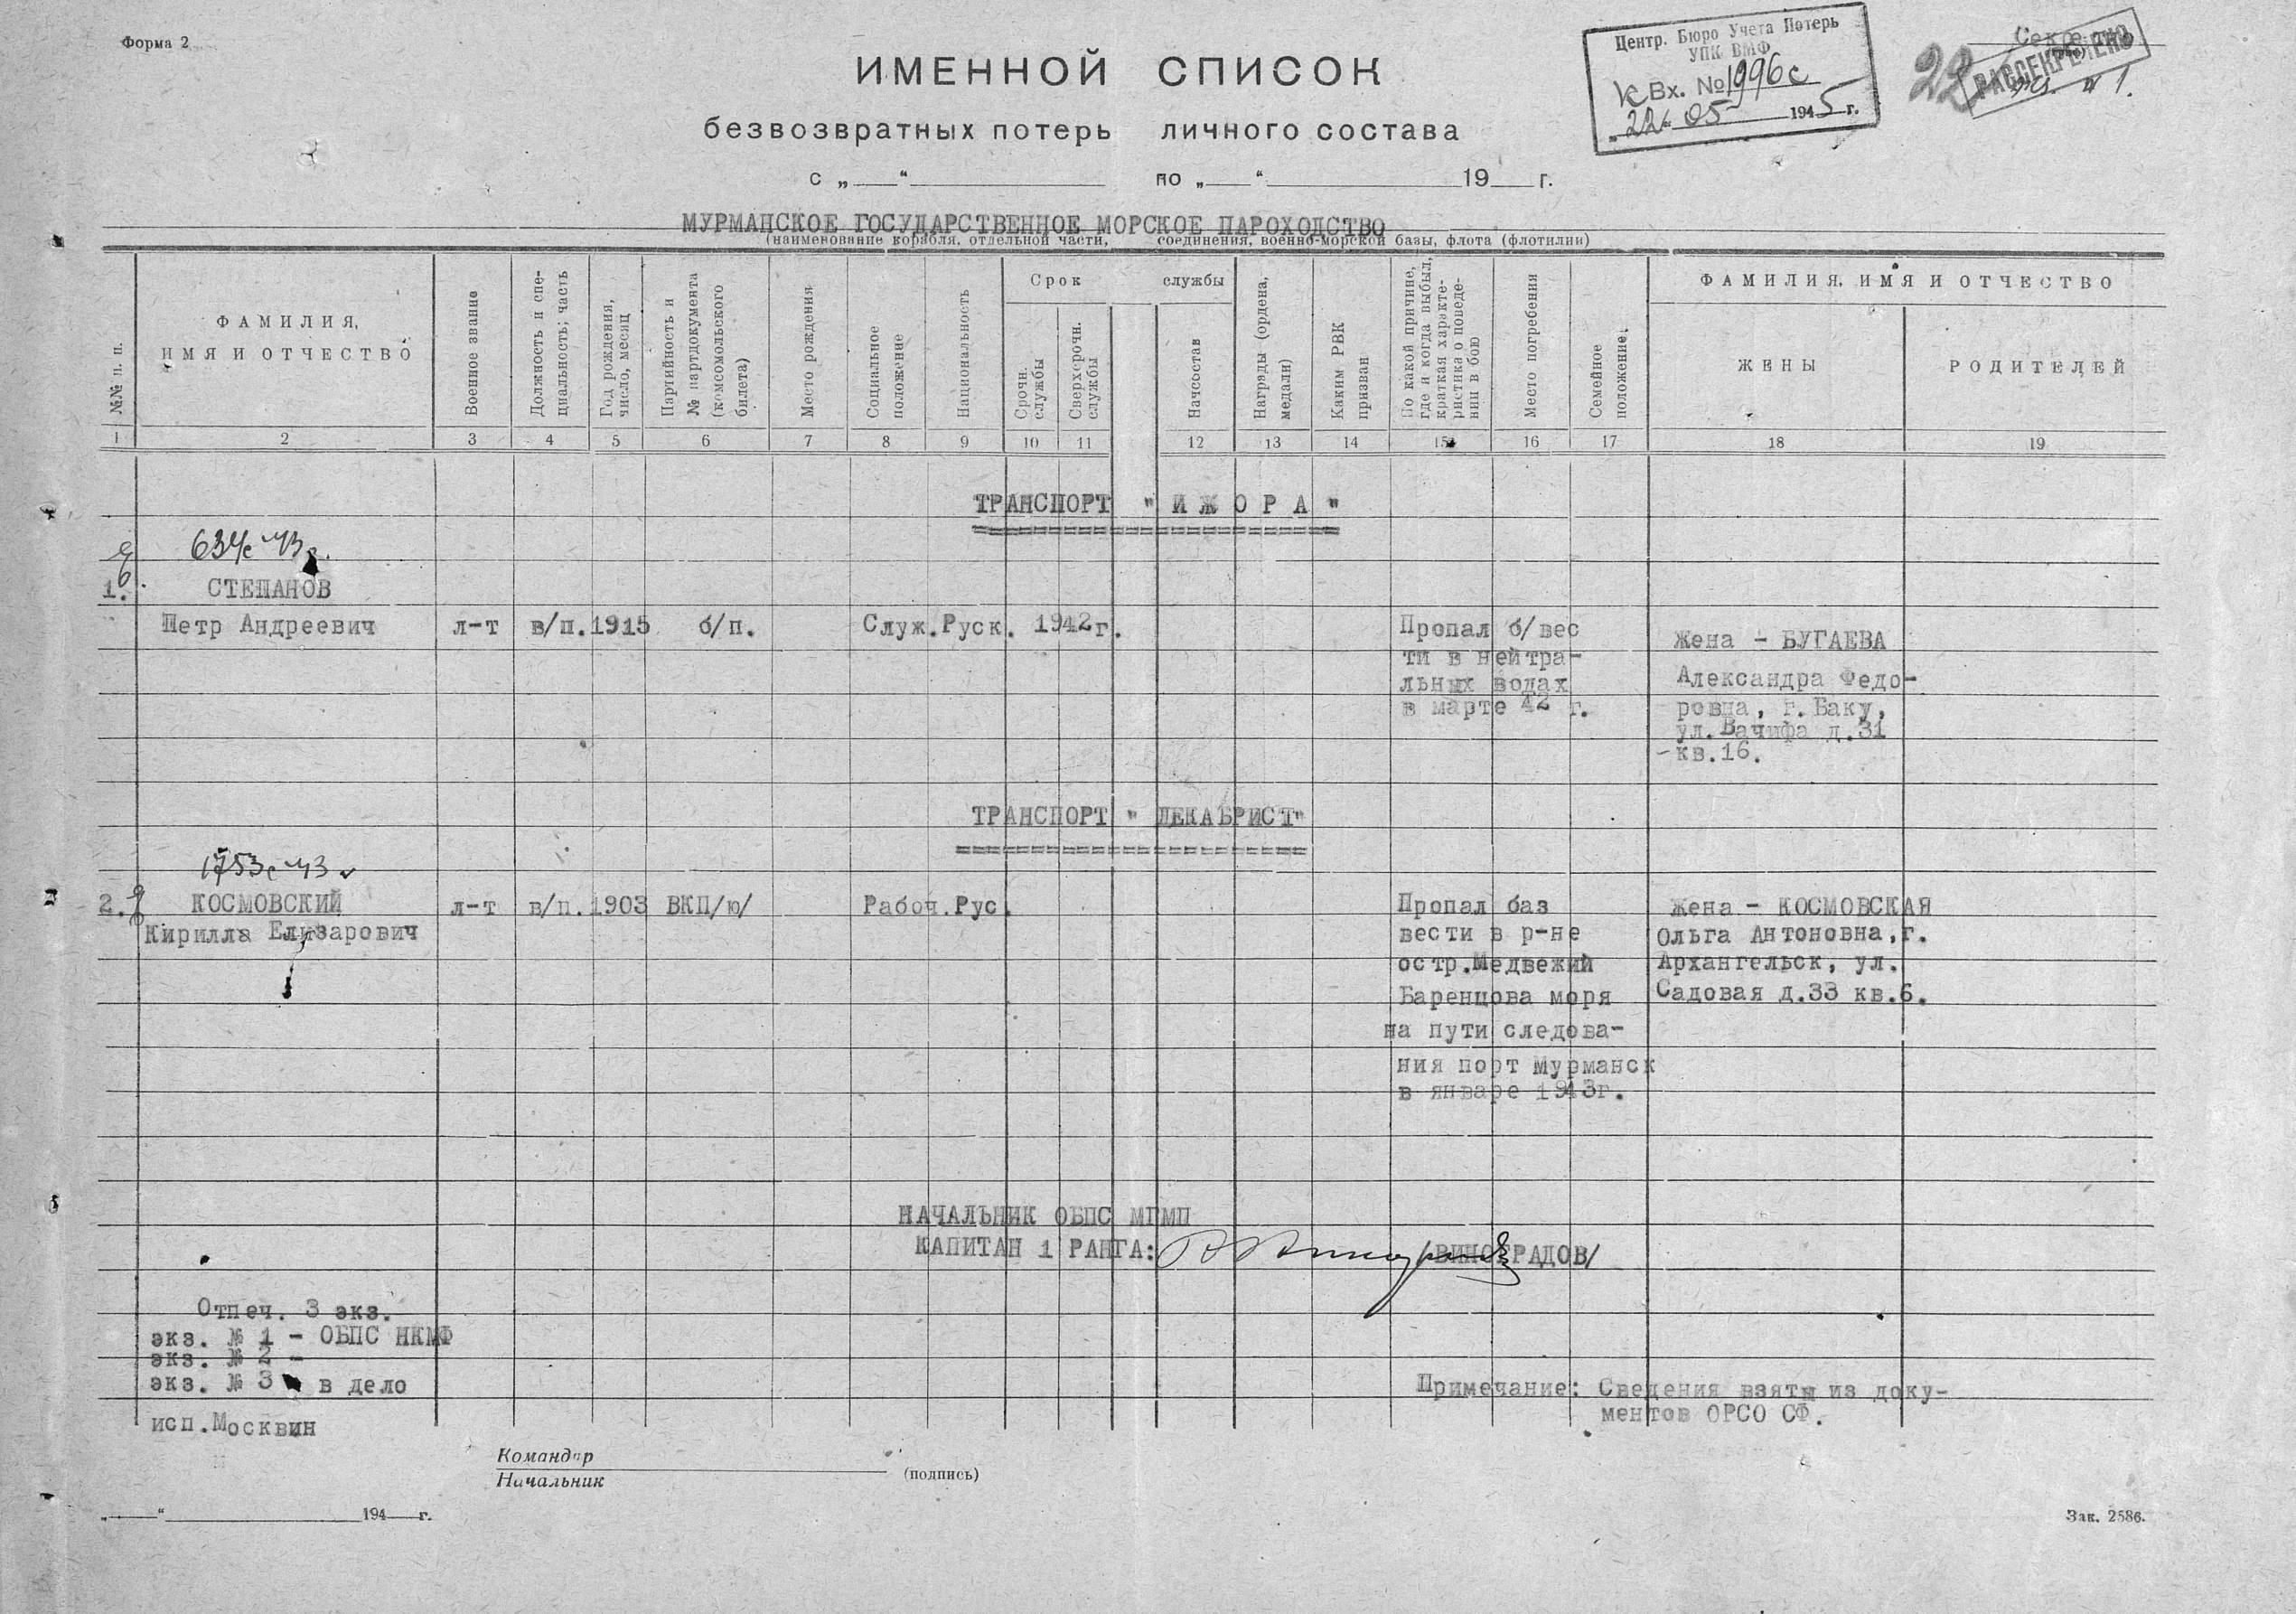 Форма 2
Центр. Бюро Учета Потерь
УПК ВМФ
к Вх. № 1996с
„22“ 05 1945 г.
Секретно
РАССЕКРЕЧЕНО
22
ИМЕННОЙ СПИСОК
безвозвратных потерь личного состава
с „ “ по „ “ 19 г.
МУРМАНСКОЕ ГОСУДАРСТВЕННОЕ МОРСКОЕ ПАРОХОДСТВО
(наименование корабля, отдельной части, соединения, военно-морской базы, флота (флотилии)
№№ п. п.
ФАМИЛИЯ,
ИМЯ И ОТЧЕСТВО
Военное звание
Должность и спе-
циальность; часть
Год рождения,
число, месяц
Партийность и
№ партдокумента
(комсомольского
билета)
Место рождения
Социальное
положение
Национальность
Срок службы
Срочн.
службы
Сверхсрочн.
службы
Начсостав
Награды (ордена,
медали)
Каким РВК
призван
По какой причине,
где и когда выбыл,
краткая характе-
ристика о поведе-
нии в бою
Место погребения
Семейное
положение
ФАМИЛИЯ, ИМЯ И ОТЧЕСТВО
ЖЕНЫ
РОДИТЕЛЕЙ
1 2 3 4 5 6 7 8 9 10 11 12 13 14 15 16 17 18 19
ТРАНСПОРТ "ИЖОРА"
634с-43г.
1. СТЕПАНОВ
Петр Андреевич л-т в/п. 1915 б/п. Служ. Руск. 1942г.
Пропал б/вес
ти в нейтра-
льных водах
в марте 42 г.
Жена - БУГАЕВА
Александра Федо-
ровна, г. Баку,
ул. Вачифа д.31
-кв.16.
ТРАНСПОРТ "ДЕКАБРИСТ"
1753с-43
2. КОСМОВСКИЙ л-т в/п. 1903 ВКП/ю/ Рабоч. Рус.
Кирилла Елизарович
Пропал баз
вести в р-не
остр.Медвежий
Баренцова моря
на пути следова-
ния порт Мурманск
в январе 1943г.
Жена - КОСМОВСКАЯ
Ольга Антоновна, г.
Архангельск, ул.
Садовая д.33 кв.6.
НАЧАЛЬНИК ОБПС МГМП
КАПИТАН 1 РАНГА: /ВИНОГРАДОВ/
Отпеч. 3 экз.
экз. № 1 - ОБПС НКМФ
экз. № 2 -
экз. № 3 - в дело
исп.Москвин
Примечание: Сведения взяты из доку-
ментов ОРСО СФ.
Командир
Начальник
(подпись)
„ “ 194 г.
Зак. 2586.